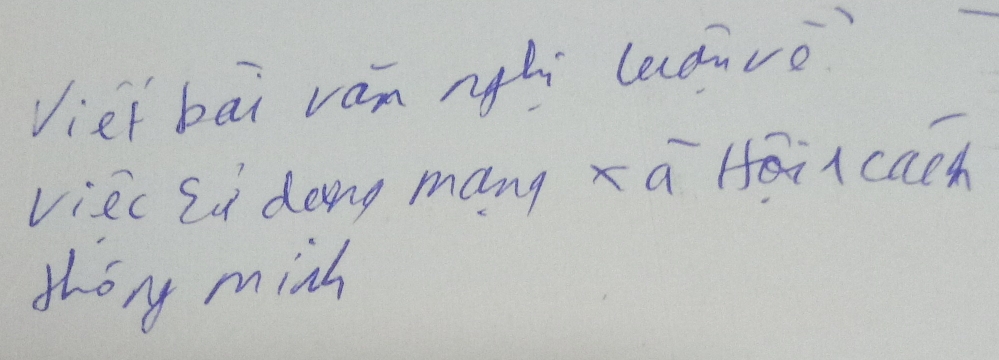 Viết bài văn nghị luận về
việc sử dụng mạng xã Hội 1 cách
thông minh